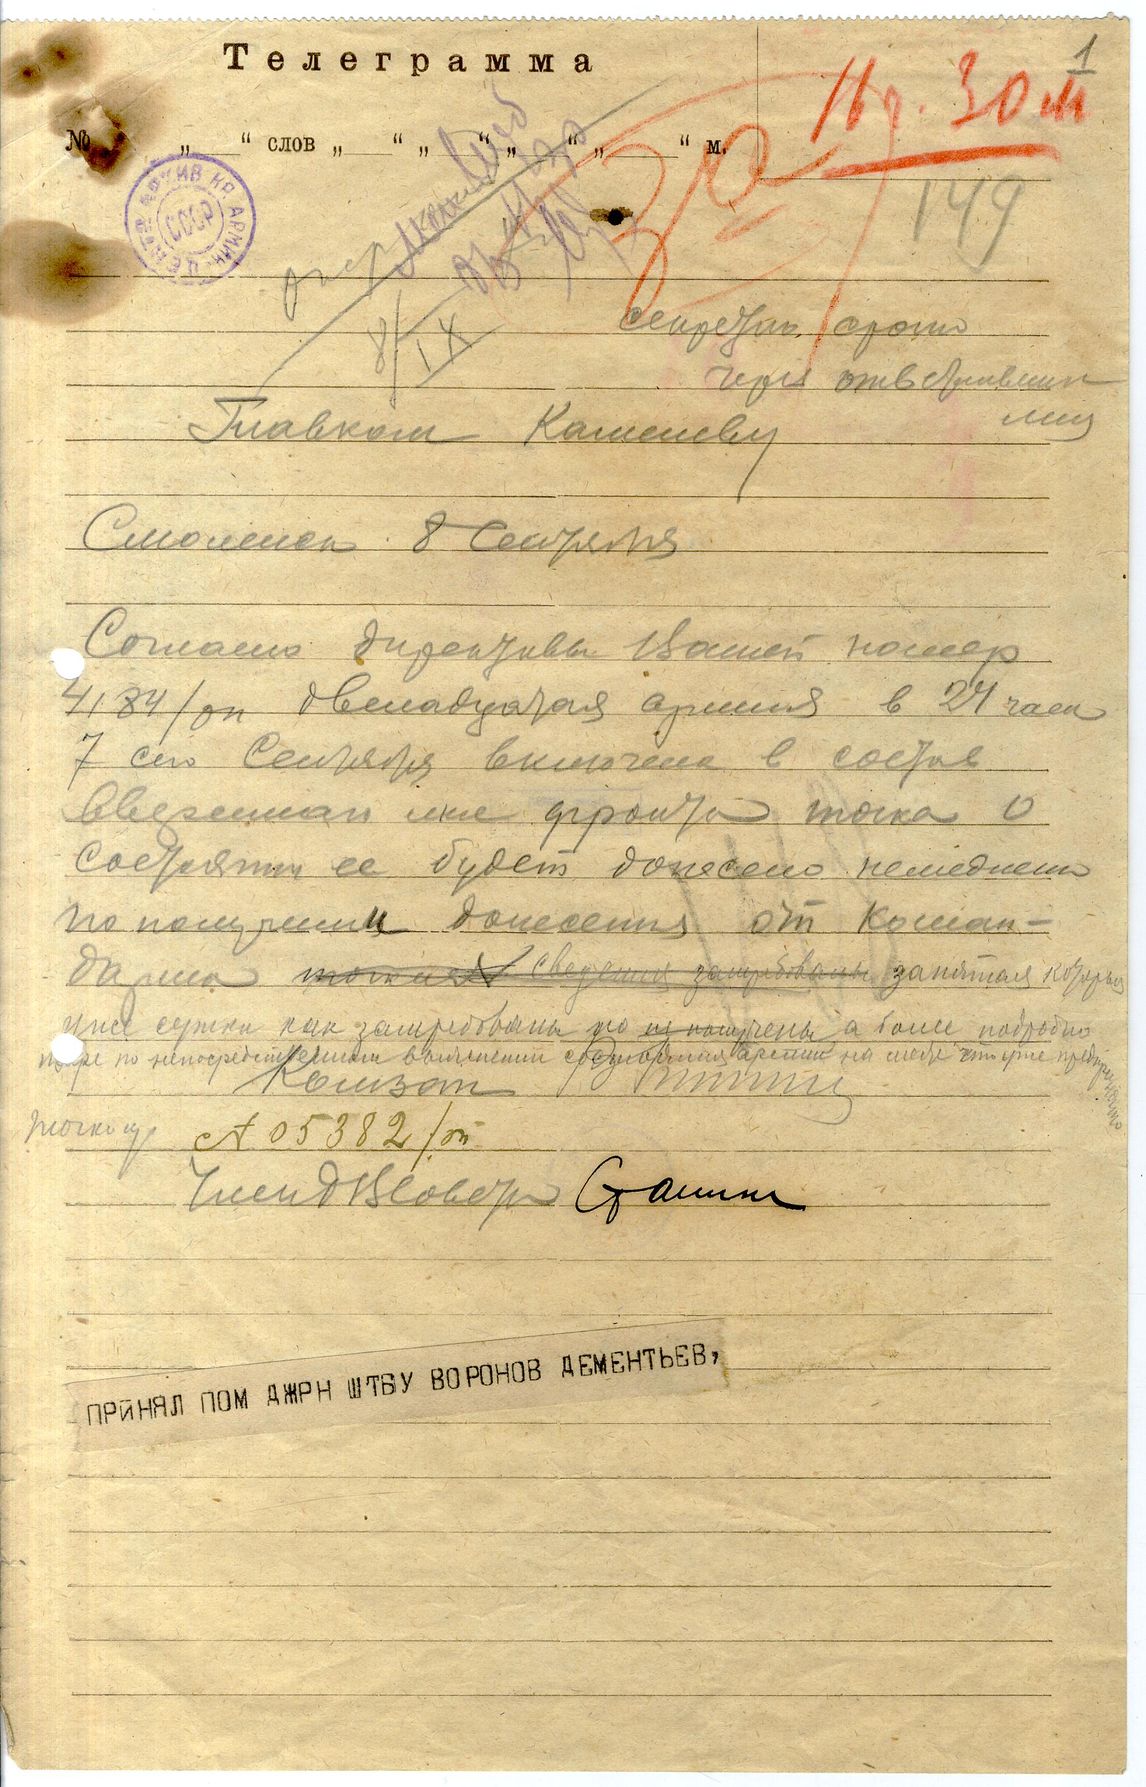 Телеграмма
1
№ „ “ слов „ “ „ “ „ “ „ “ м.
16 ч. 30 м
149
АРХИВ КР. АРМИИ
СССР
8/IX
секретно срочно
Главком Каменеву
Смоленск 8 Сентября
Согласно директивы Вашей номер
4184/оп двенадцатая армия в 24 часа
7 сего Сентября включена в состав
вверенного мне фронта точка О
состоянии ее будет донесено немедленно
по получении донесения от Коман-
дарма точка сведения затребованы запятая которые
уже сужки как затребованы но не получены а более подробно
по непосредственном выяснении состояния армии на месте что уже предпринято
Комзап
точка № 05382/оп
Член РВСовета Сталин
ПРИНЯЛ ПОМ ДЖРН ШТБУ ВОРОНОВ ДЕМЕНТЬЕВ,